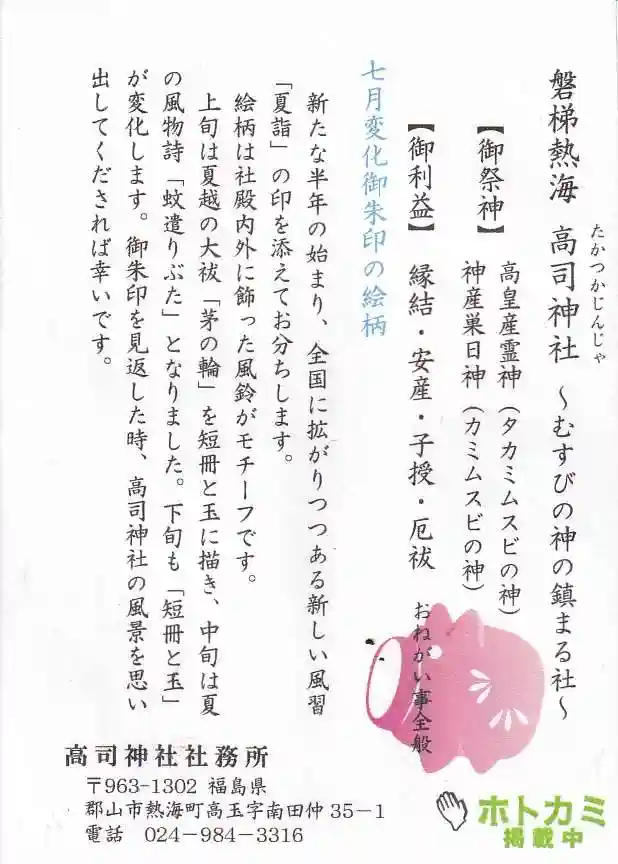 たかつかじんじゃ
磐梯熱海 高司神社 ～むすびの神の鎮まる社～
【御祭神】 高皇産霊神(タカミムスビの神)
神産巣日神(カミムスビの神)
【御利益】 縁結・安産・子授・厄祓 おねがい事全般
七月変化御朱印の絵柄
新たな半年の始まり、全国に拡がりつつある新しい風習
「夏詣」の印を添えてお分ちします。
絵柄は社殿内外に飾った風鈴がモチーフです。
上旬は夏越の大祓「茅の輪」を短冊と玉に描き、中旬は夏
の風物詩「蚊遣りぶた」となりました。下旬も「短冊と玉」
が変化します。御朱印を見返した時、高司神社の風景を思い
出してくだされば幸いです。
高司神社社務所
〒963-1302 福島県
郡山市熱海町高玉字南田仲 35－1
電話 024-984-3316
ホトカミ
掲載中